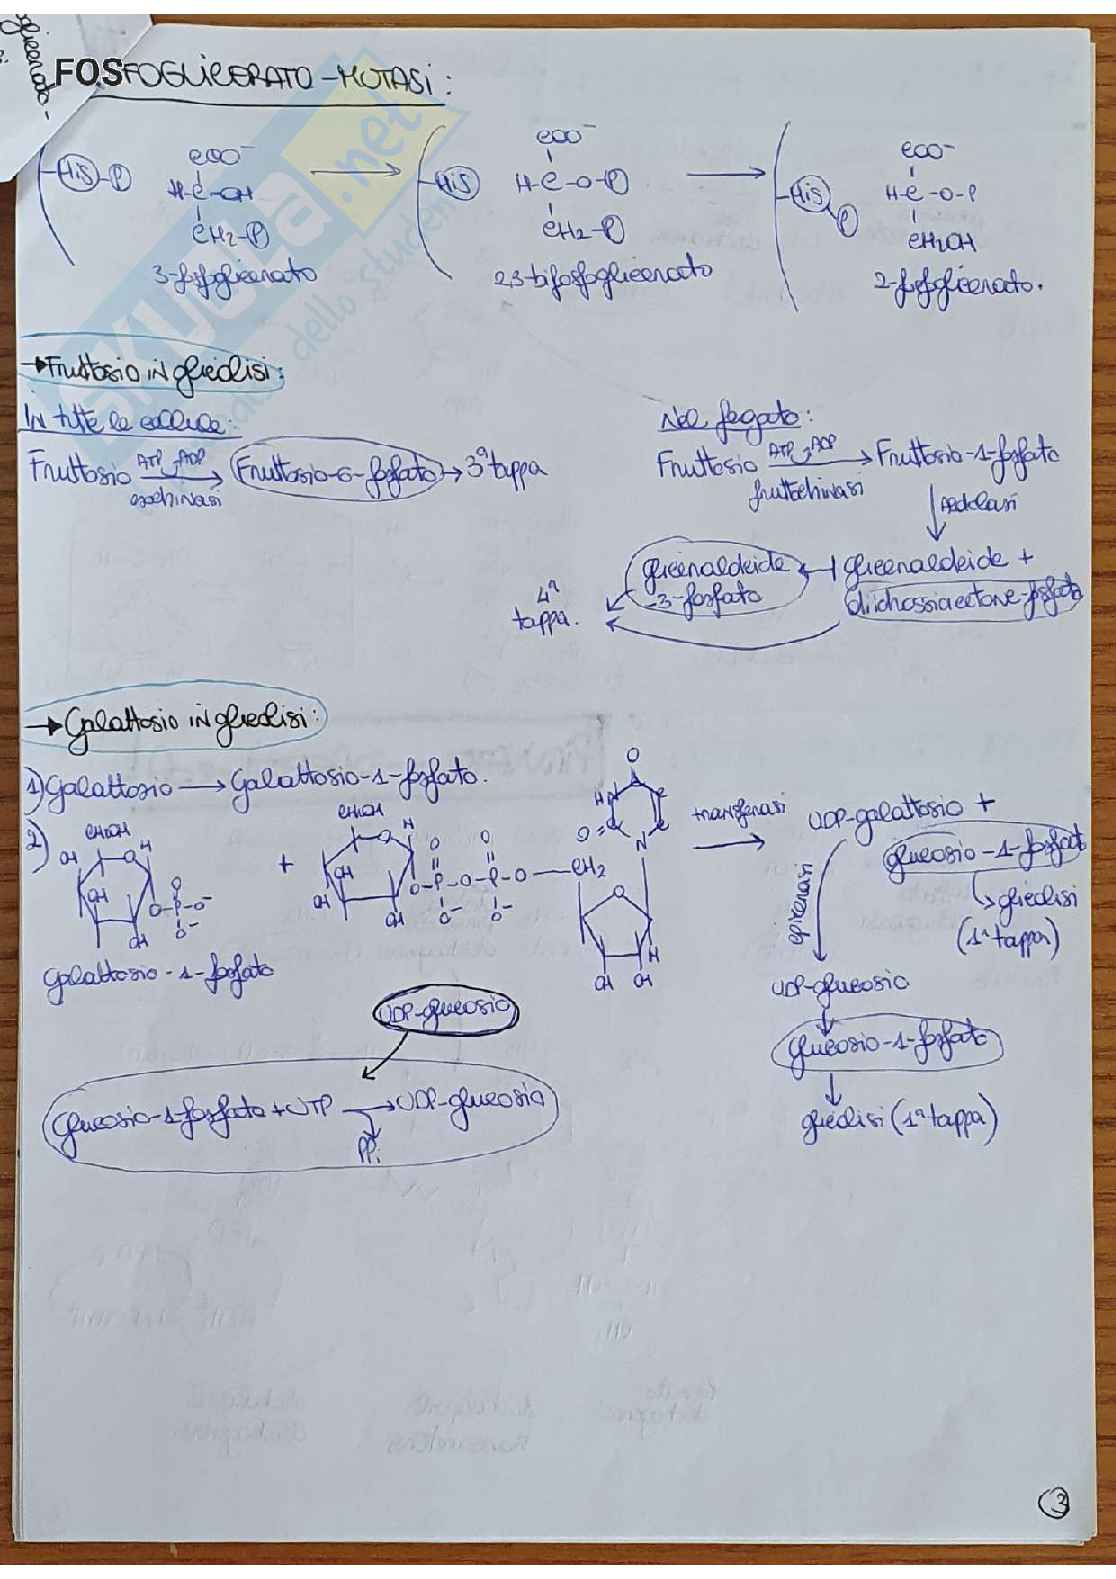 glicerato-
FOSFOGLICERATO-MUTASI:
His-P COO⁻ His COO⁻ His P COO⁻
H-C-OH H-C-O-P H-C-O-P
CH2-P CH2-P CH2OH
3-fosfoglicerato 2,3-bifosfoglicerato 2-fosfoglicerato.
SKUOLA.net
dello studente
→Fruttosio in glicolisi:
In tutte le cellule: Nel fegato:
Fruttosio ATP ADP → Fruttosio-6-fosfato → 3ª tappa
esochinasi
Fruttosio ATP ADP → Fruttosio-1-fosfato
fruttochinasi
↓ Aldolasi
gliceraldeide -3-fosfato ← gliceraldeide +
diidrossiacetone-fosfato
4ª tappa.
→ Galattosio in glicolisi:
1) Galattosio → Galattosio-1-fosfato.
2) CH2OH OH O H OH OH O-P-O⁻ O O⁻
+
CH2OH O H OH OH OH O-P-O-P-O-CH2 O O O⁻ O⁻
O HN O= N O H OH OH
transferasi → UDP-galattosio +
glucosio-1-fosfat
↳ glicolisi
(1ª tappa)
epimerasi
Galattosio-1-fosfato
UDP-glucosio
UDP-glucosio
↓
glucosio-1-fosfato
↓
glicolisi (1ª tappa)
Glucosio-1-fosfato + UTP → UDP-glucosio
PPi
3